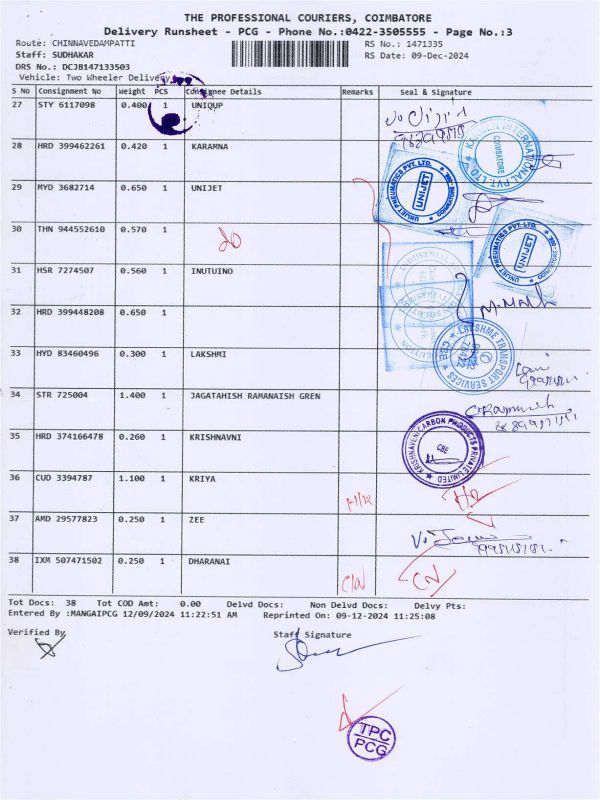 THE PROFESSIONAL COURIERS, COIMBATORE
Delivery Runsheet - PCG - Phone No.:0422-3505555 - Page No.:3
Route: CHINNAVEDAMPATTI RS No.: 1471335
Staff: SUDHAKAR RS Date: 09-Dec-2024
DRS No.: DCJB147133503
Vehicle: Two Wheeler Delivery
S No Consignment No Weight PCS Consignee Details Remarks Seal & Signature
27 STY 6117098 0.400 1 UNIQUP
28 HRD 399462261 0.420 1 KARAMNA
29 MYD 3682714 0.650 1 UNIJET
30 THN 944552610 0.570 1
31 HSR 7274507 0.560 1 INUTUINO
32 HRD 399448208 0.650 1
33 HYD 83460496 0.300 1 LAKSHMI
34 STR 725004 1.400 1 JAGATAHISH RAMANAISH GREN
35 HRD 374166478 0.260 1 KRISHNAVNI
36 CUD 3394787 1.100 1 KRIYA
37 AMD 29577823 0.250 1 ZEE
38 IXM 507471502 0.250 1 DHARANAI
COIMBATORE
UNIJET PNEUMATICS PVT. LTD.
UNIJET
UNIJET PNEUMATICS PVT. LTD.
UNIJET
LAKSHME TRANSPORT SERVICES
CBE
KRISHNAVENI CARBON PRODUCTS PRIVATE LIMITED
CBE
Tot Docs: 38 Tot COD Amt: 0.00 Delvd Docs: Non Delvd Docs: Delvy Pts:
Entered By :MANGAIPCG 12/09/2024 11:22:51 AM Reprinted On: 09-12-2024 11:25:08
Verified By Staff Signature
TPC
PCG